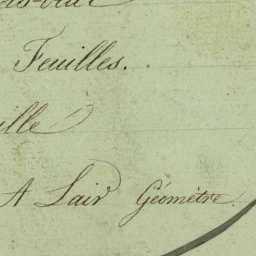 Feuilles.
ille
A Lair Géomètre.